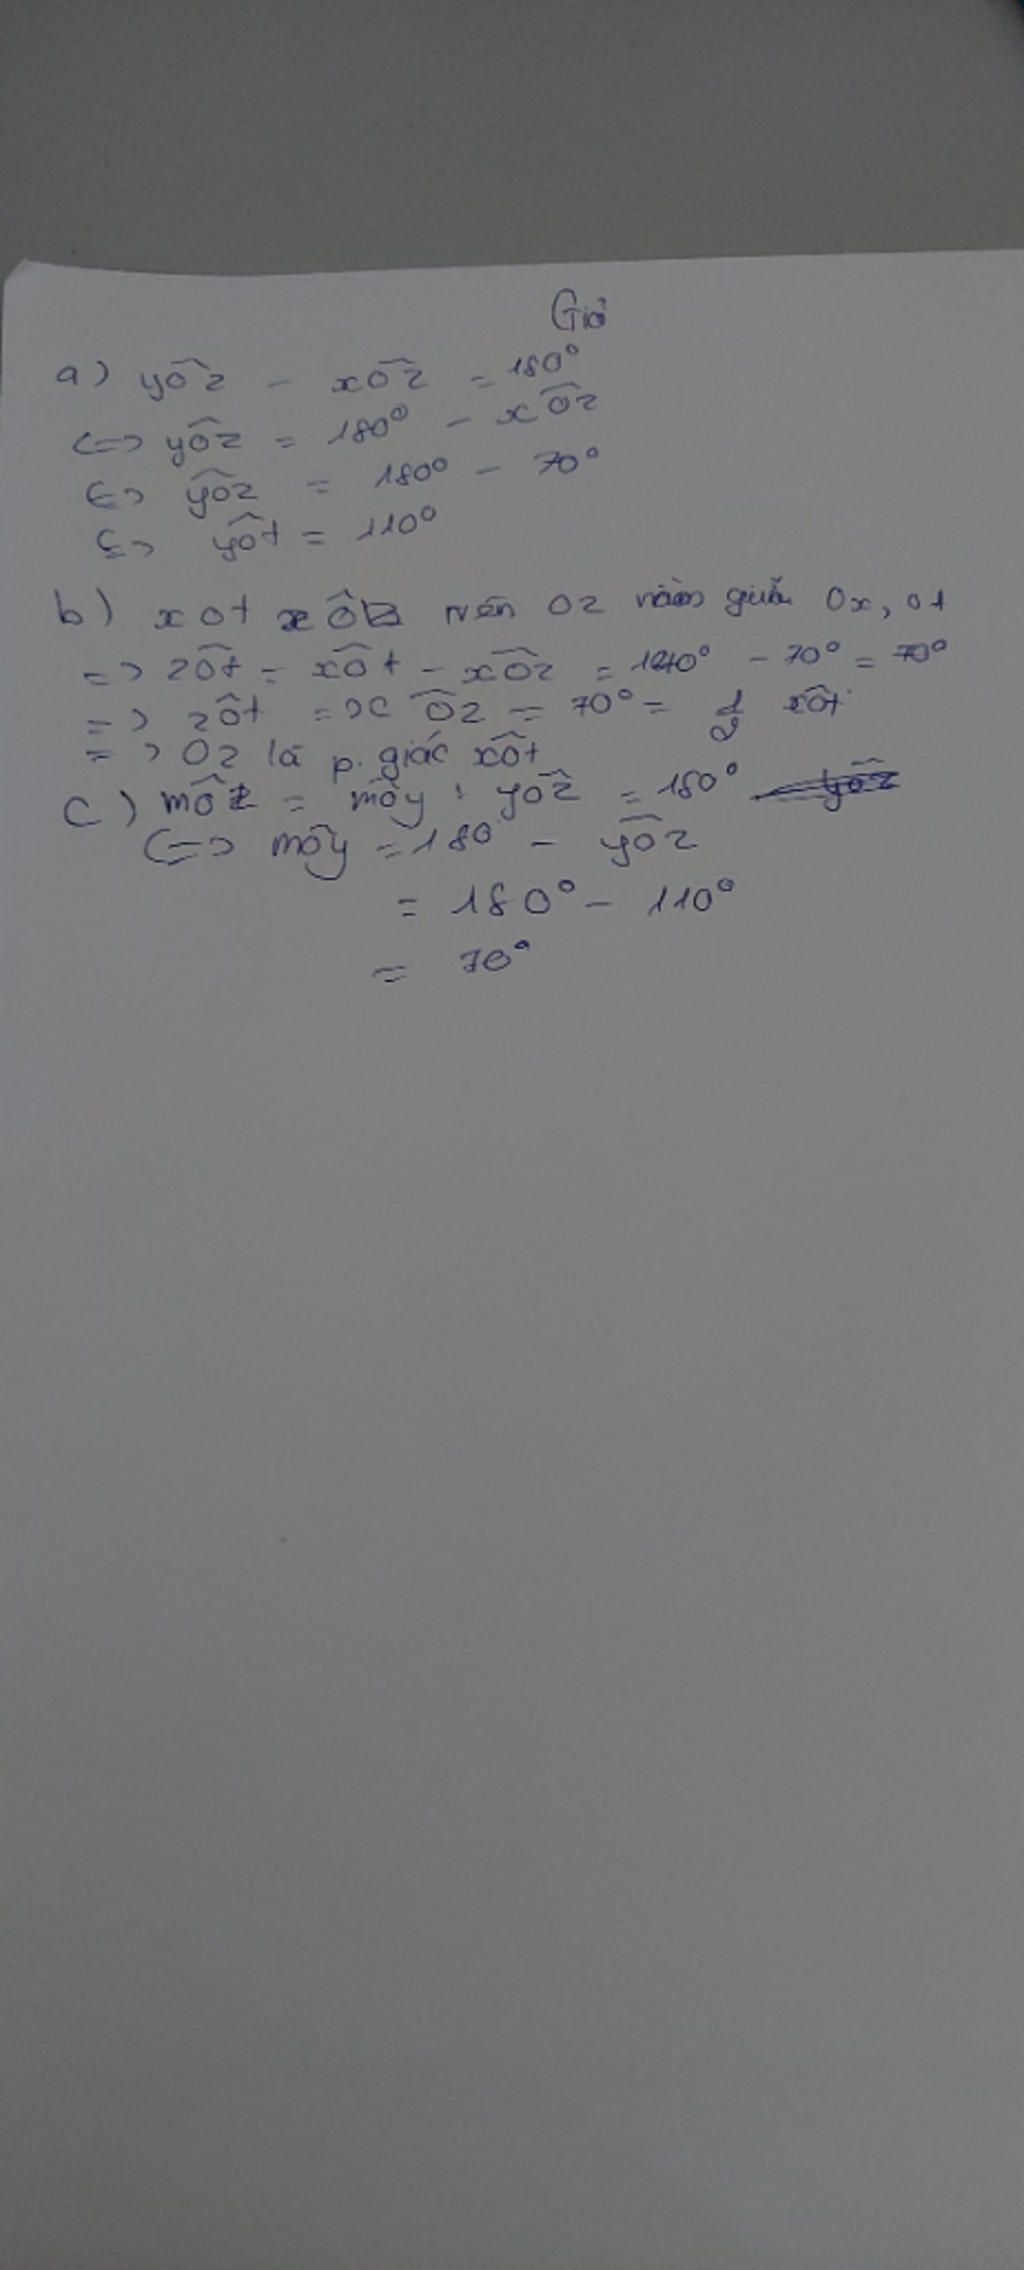 Giả
a) yôz - xôz = 180°
<=> yôz = 180° - xôz
<=> yôz = 180° - 70°
<=> yôt = 110°
b) xOt xÔ nên Oz nằm giữa Ox, Ot
=> zôt = xôt - xôz = 140° - 70° = 70°
=> zôt = xôz = 70° = 1/2 xôt
=> Oz là p. giác xôt
c) môz = môy : yôz = 180°
<=> môy = 180 - yôz
= 180° - 110°
= 70°